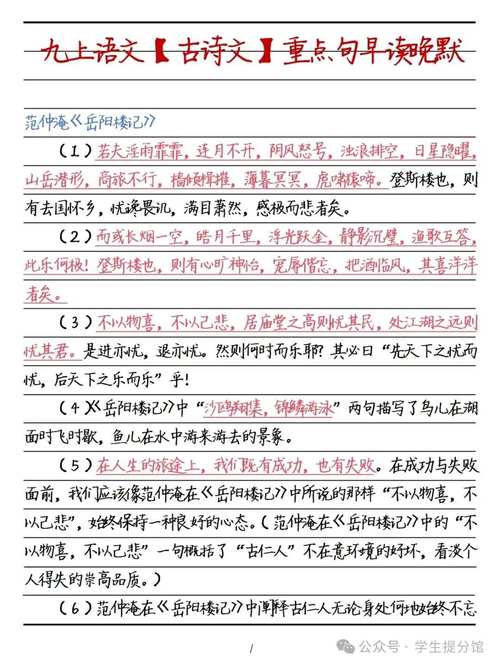 九上语文【古诗文】重点句早读晚默
范仲淹《岳阳楼记》
（1）若夫淫雨霏霏，连月不开，阴风怒号，浊浪排空，日星隐曜，
山岳潜形，商旅不行，樯倾楫摧，薄暮冥冥，虎啸猿啼。登斯楼也，则
有去国怀乡，忧谗畏讥，满目萧然，感极而悲者矣。
（2）而或长烟一空，皓月千里，浮光跃金，静影沉璧，渔歌互答，
此乐何极！登斯楼也，则有心旷神怡，宠辱偕忘，把酒临风，其喜洋洋
者矣。
（3）不以物喜，不以己悲，居庙堂之高则忧其民，处江湖之远则
忧其君。是进亦忧，退亦忧。然则何时而乐耶？其必曰“先天下之忧而
忧，后天下之乐而乐”乎！
（4）《岳阳楼记》中“沙鸥翔集，锦鳞游泳”两句描写了鸟儿在湖
面时飞时歇，鱼儿在水中游来游去的景象。
（5）在人生的旅途上，我们既有成功，也有失败。在成功与失败
面前，我们应该像范仲淹在《岳阳楼记》中所说的那样“不以物喜，不
以己悲”，始终保持一种良好的心态。（范仲淹在《岳阳楼记》中的“不
以物喜，不以己悲”一句概括了“古仁人”不在意环境的好坏，看淡个
人得失的崇高品质。）
（6）范仲淹在《岳阳楼记》中阐释古仁人无论身处何地始终不忘
1
公众号·学生提分馆